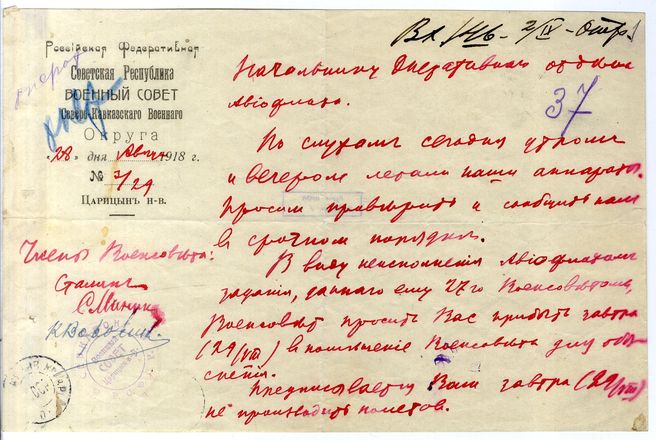 Российская Федеративная
Советская Республика
ВОЕННЫЙ СОВЕТ
Северо-Кавказского Военнаго
Округа
"28" дня Авг. 1918 г.
№ 7/29
Царицынъ н-в.
Вх/46 - 2/IX -
37
Начальнику Оперативнаго отдела
Авиофлота.
По слухам сегодня утром
и вечером летали наши аппараты.
Просим проверить и сообщить нам
в срочном порядке.
В виду неисполнения Авиофлотом
задания, даннаго ему 27-го Военсоветом,
Военсовет просит Вас прибыть завтра
(29/VIII) в помещение Военсовета для объ-
яснения.
Предписывается Вам завтра (29/VIII)
не производить полетов.
Члены Военсовета:
Сталин
С. Минин
К Ворошил
СОВЕТ